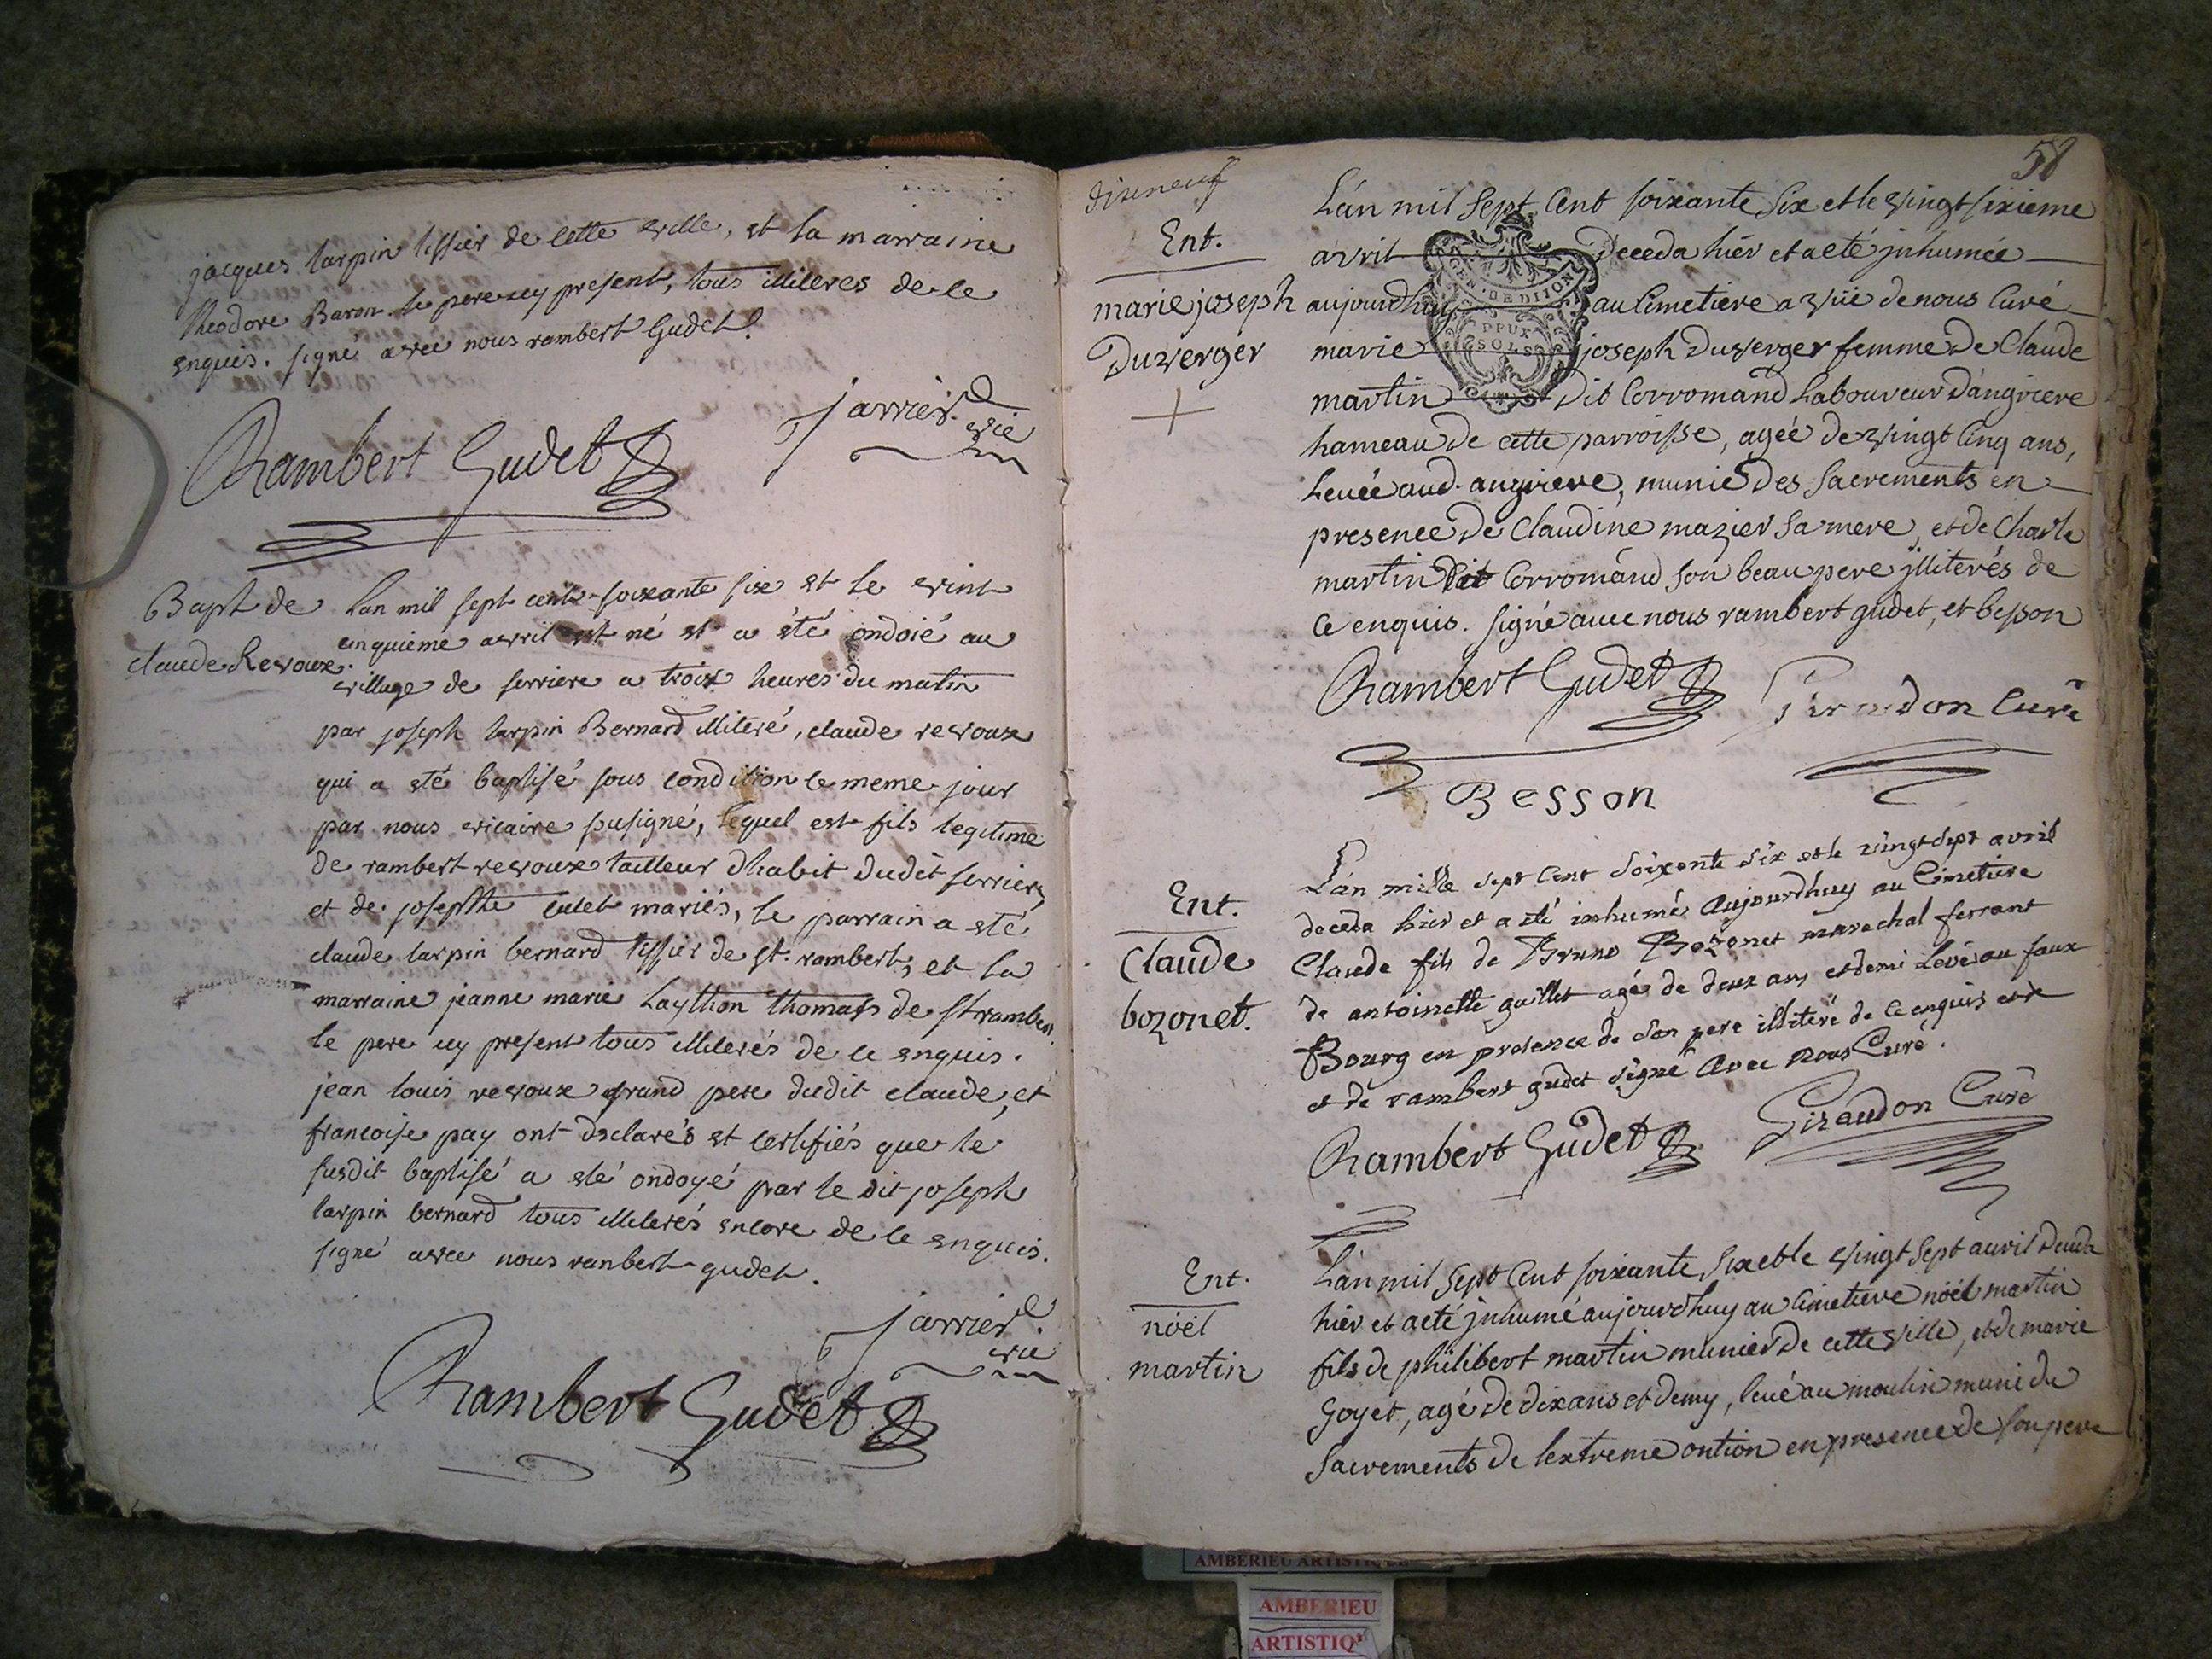 jacques tarpin tissier de cette ville, et la marraine
theodore Baron le pere icy present, tous illiteres de ce
enquis. signé avec nous rambert Gudet.
jarrier
vic
Rambert Gudet
Bapt de
claude Revoux.
Lan mil sept cent soixante six et le vint
cinquieme avril est né et a été ondoié au
village de serriere a trois heures du matin
par joseph tarpin Bernard illiteré, claude revoux
qui a été baptisé sous condition le meme jour
par nous vicaire susigné, lequel est fils legitime
de rambert revoux tailleur dhabit dudit serriere,
et de josephte mariés, le parrain a été
claude tarpin bernard tissier de st. rambert, et la
marraine jeanne marie Laython thomass de st rambert
le pere icy present tous illiterés de ce enquis.
jean louis revoux grand pere dudit claude, et
francoise pay ont declarés et certifiés que le
susdit baptisé a été ondoyé par le dit joseph
tarpin bernard tous illiterés encore de ce enquis.
signé avec nous ranbert gudet.
jarrier
vic
Rambert Gudet
58
dixneuf
Ent.
marie joseph
Duverger
L'an mil Sept Cent soixante Six et le vingt sixieme
avril Deceda hier et a eté jnhumée
aujourdhuy au Cimetiere a vüe de nous Curé
marie joseph Duverger femme De Claude
martin Dit Corromand Laboureur D'angriere
hameau de cette parroisse, ageé de vingt Cinq ans,
Leuée aud. angriere, munie Des Sacrements en
presence De Claudine mazier Sa mere, et de Charle
martin Dit Corromand son beau pere jlliterés de
Ce enquis. signé auec nous rambert gudet, et besson
GEN. DE DIJON
DEUX
SOLS
Rambert Gudet
Giraudon Curé
Besson
Ent.
Claude
bozonet.
L'an mille sept Cent Soixente Six et le vingt Sept avril
deceda hier et a été inhumé aujourdhuy au Cimetiere
Claude fils de Bruno Bozonet marechal ferrant
de antoinette guillet agé de deux ans et demi Levé au faux
Bourg en presence de Son pere illiteré de Ce enquis
et de rambert gudet signé avec nous Curé.
Rambert Gudet
Giraudon Curé
Ent.
nöel
martin
L'an mil Sept Cent soixante Six et le vingt Sept auril Deceda
hier et a eté jnhumé aujourdhuy au Cimetiere nöel martin
fils de philibert martin munier De cette ville, et de marie
Goyet, agé De Dix ans et demy, leué au moulin muni du
Sacrements De lextreme ontion en presence De Son pere
AMBERIEU ARTISTIQUE
AMBERIEU
ARTISTIQ